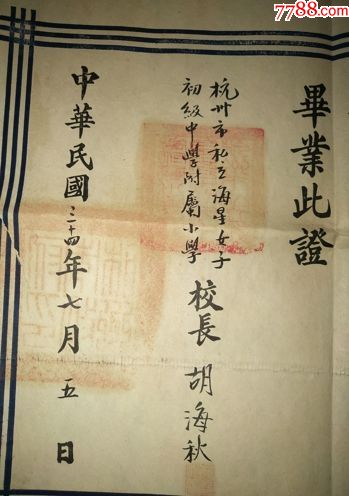 7788.com
畢業此證
杭州市私立海星女子
初級中學附屬小學
校長 胡海秋
中華民國三十四年七月五日